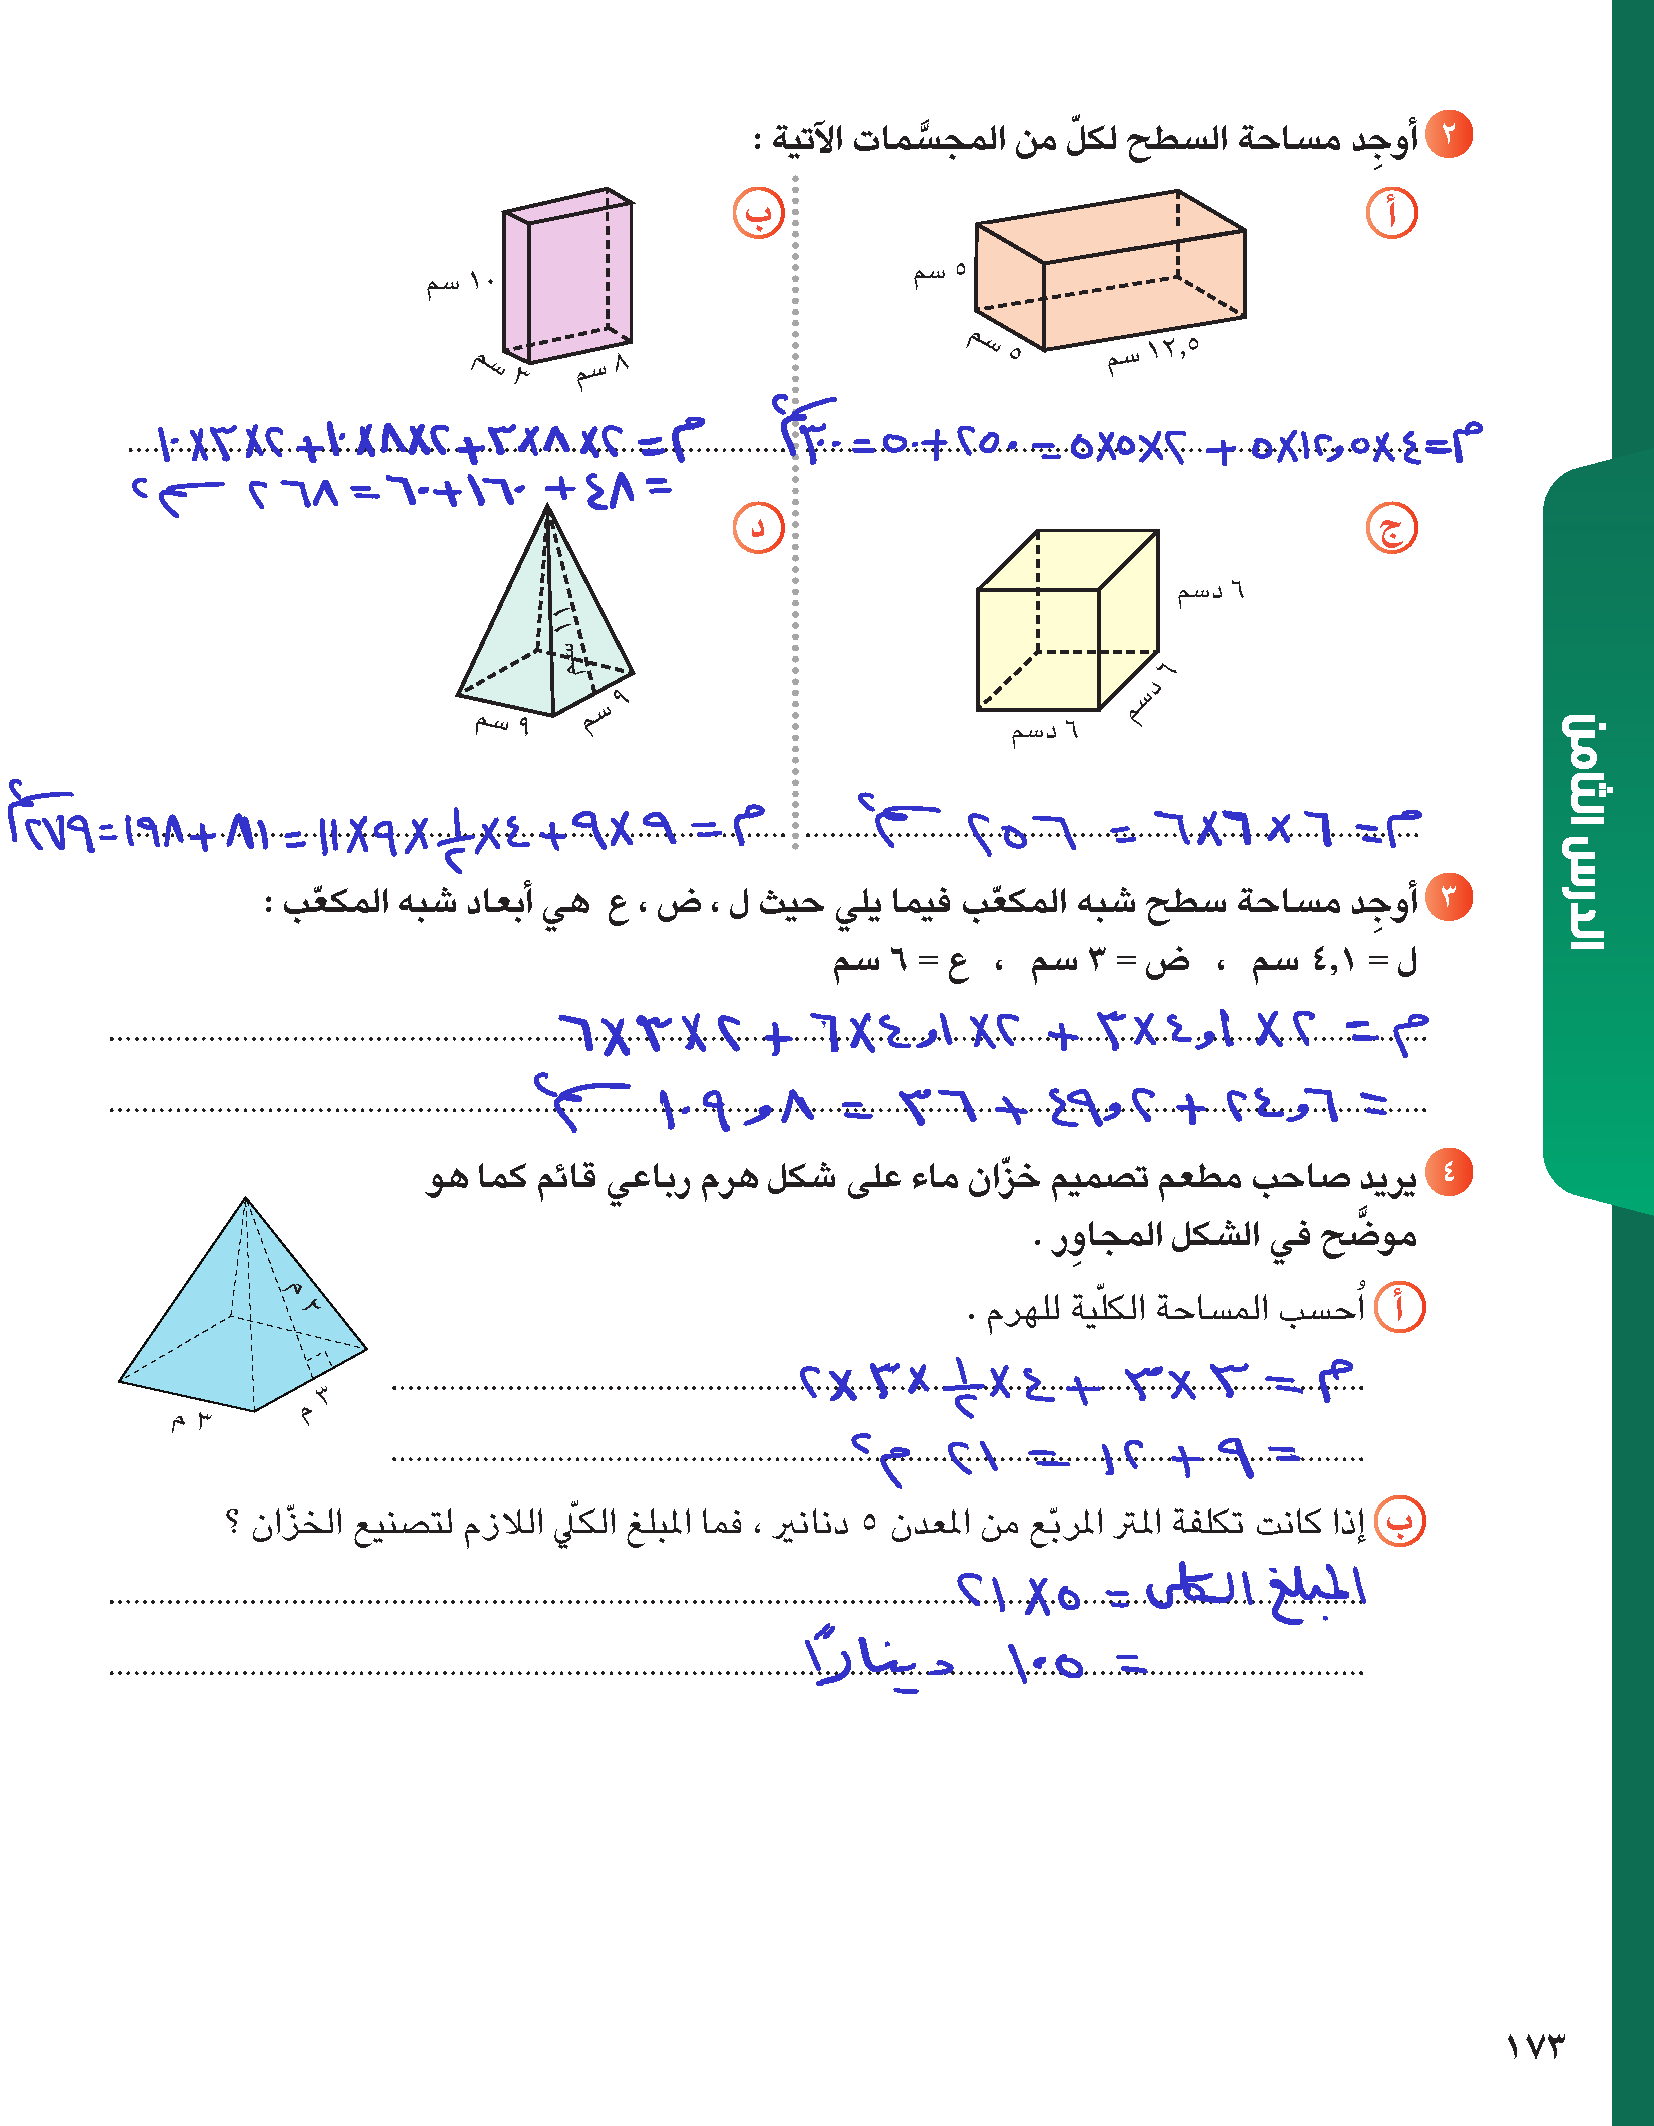 ٢ أوجِد مساحة السطح لكلّ من المجسَّمات الآتية :
أ
٥ سم
٥ سم
١٢,٥ سم
م = ٤ × ١٢,٥ × ٥ + ٢ × ٥ × ٥ = ٢٥٠ + ٥٠ = ٣٠٠ سم٢
ب
١٠ سم
٣ سم
٨ سم
م = ٢ × ٨ × ٣ + ٢ × ٨ × ١٠ + ٢ × ٣ × ١٠
= ٤٨ + ١٦٠ + ٦٠ = ٢٦٨ سم٢
ج
٦ دسم
٦ دسم
٦ دسم
م = ٦ × ٦ × ٦ = ٢٥٦ سم٢
د
١١ سم
٩ سم
٩ سم
م = ٩ × ٩ + ٤ × ١/٢ × ٩ × ١١ = ٨١ + ١٩٨ = ٢٧٩ سم٢
٣ أوجِد مساحة سطح شبه المكعّب فيما يلي حيث ل ، ض ، ع هي أبعاد شبه المكعّب :
ل = ٤,١ سم ، ض = ٣ سم ، ع = ٦ سم
م = ٢ × ٤,١ × ٣ + ٢ × ٤,١ × ٦ + ٢ × ٣ × ٦
= ٢٤,٦ + ٤٩,٢ + ٣٦ = ١٠٩,٨ سم٢
٤ يريد صاحب مطعم تصميم خزّان ماء على شكل هرم رباعي قائم كما هو
موضَّح في الشكل المجاوِر .
٢ م
٣ م
٣ م
أ اُحسب المساحة الكلّية للهرم .
م = ٣ × ٣ + ٤ × ١/٢ × ٣ × ٢
= ٩ + ١٢ = ٢١ م٢
ب إذا كانت تكلفة المتر المربّع من المعدن ٥ دنانير ، فما المبلغ الكلّي اللازم لتصنيع الخزّان ؟
المبلغ الكلي = ٥ × ٢١
= ١٠٥ دينارًا
الدرس الثامن
١٧٣